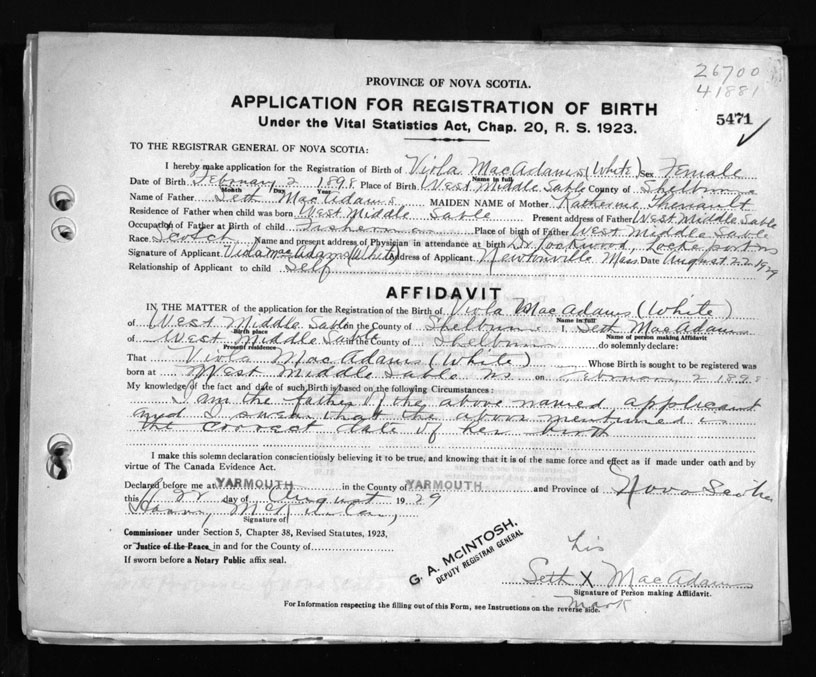 26700
41881
PROVINCE OF NOVA SCOTIA.
APPLICATION FOR REGISTRATION OF BIRTH
5471
Under the Vital Statistics Act, Chap. 20, R. S. 1923.
TO THE REGISTRAR GENERAL OF NOVA SCOTIA:
I hereby make application for the Registration of Birth of Viola MacAdams (White) Sex Female
Name in full
Date of Birth February 2 1898 Place of Birth West Middle Sable County of Shelburne
Month Day Year
Name of Father Seth MacAdams MAIDEN NAME of Mother Katherine
Residence of Father when child was born West Middle Sable Present address of Father West Middle Sable
Occupation of Father at Birth of child Fisherman Place of birth of Father West Middle Sable
Race Scotch Name and present address of Physician in attendance at birth Dr Lockwood, Lockeport NS
Signature of Applicant MacAdams (White) Address of Applicant Newtonville Mass. Date August 22 1929
Relationship of Applicant to child Self
AFFIDAVIT
IN THE MATTER of the application for the Registration of the Birth of Viola MacAdams (White)
Name in full
of West Middle Sable in the County of Shelburne I, Seth MacAdams
Birth place Name of person making Affidavit
of West Middle Sable in the County of Shelburne do solemnly declare:
Present residence
That Viola MacAdams (White) Whose Birth is sought to be registered was
born at West Middle Sable NS on February 2 1898
My knowledge of the fact and date of such Birth is based on the following Circumstances:
I am the father of the above named applicant
and I swear that the above mentioned is
the correct date of her birth
I make this solemn declaration conscientiously believing it to be true, and knowing that it is of the same force and effect as if made under oath and by
virtue of The Canada Evidence Act.
Declared before me at YARMOUTH in the County of YARMOUTH and Province of Nova Scotia
this day of August 1929
Signature of
Commissioner under Section 5, Chapter 38, Revised Statutes, 1923,
or Justice of the Peace in and for the County of
If sworn before a Notary Public affix seal.
G. A. McINTOSH,
DEPUTY REGISTRAR GENERAL
his
Seth X MacAdams
Signature of Person making Affidavit.
mark
For Information respecting the filling out of this Form, see Instructions on the reverse side.